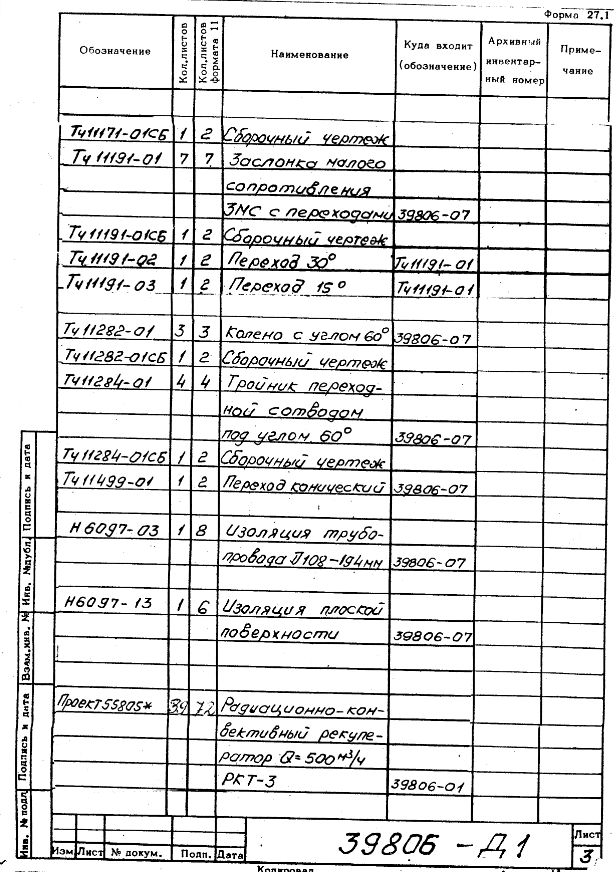 Форма 27.1
Обозначение Кол.листов Кол.листов формата 11 Наименование Куда входит (обозначение) Архивный инвентарный номер Примечание
Ту11171-01СБ 1 2 Сборочный чертеж
Ту11191-01 7 7 Заслонка малого
сопротивления
ЗМС с переходами 39806-07
Ту11191-01СБ 1 2 Сборочный чертеж
Ту11191-02 1 2 Переход 30° Ту11191-01
Ту11191-03 1 2 Переход 15° Ту11191-01
Ту11282-01 3 3 Колено с углом 60° 39806-07
Ту11282-01СБ 1 2 Сборочный чертеж
Ту11284-01 4 4 Тройник переход-
ной с отводом
под углом 60° 39806-07
Ту11284-01СБ 1 2 Сборочный чертеж
Ту11499-01 1 2 Переход конический 39806-07
Н6097-03 1 8 Изоляция трубо-
провода Д108-194мм 39806-07
Н6097-13 1 6 Изоляция плоской
поверхности 39806-07
Проект55805* 39 72 Радиационно-кон-
вективный рекупе-
ратор Q=500м³/ч
РКТ-3 39806-01
Инв. № подл. Подпись и дата Взам.инв. № Инв. №дубл. Подпись и дата
Изм Лист № докум. Подп. Дата
39806-Д1
Лист
3
Копировал